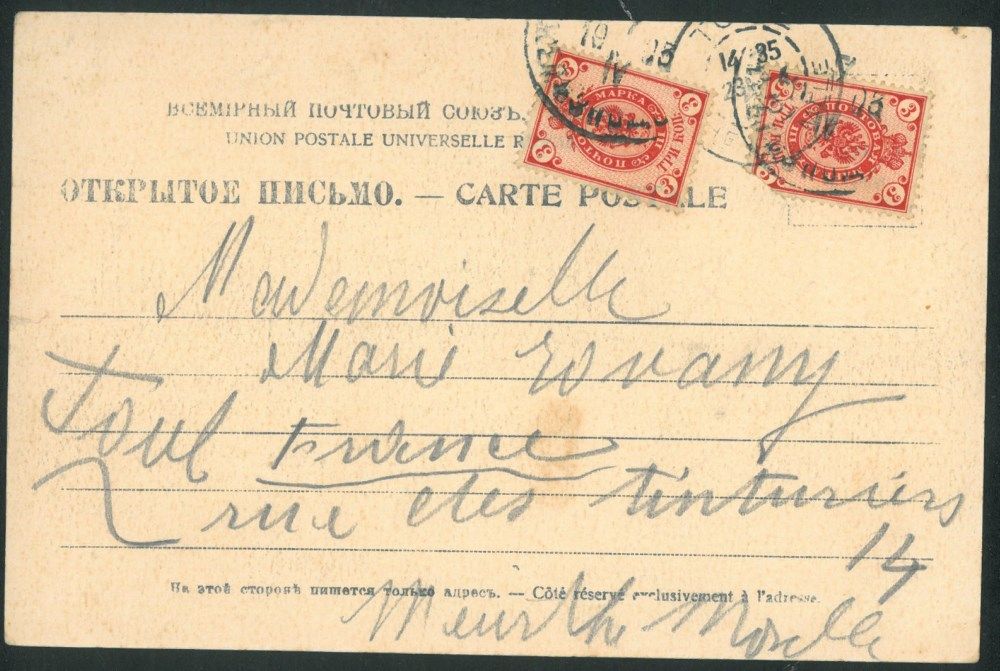 ВСЕМІРНЫЙ ПОЧТОВЫЙ СОЮЗЪ.
UNION POSTALE UNIVERSELLE R
ОТКРЫТОЕ ПИСЬМО. — CARTE POSTALE
3 МАРКА 3
3 ПОЧТОВАЯ ТРИ КОП. 3
3 ПОЧТОВАЯ 3
МАРКА ТРИ КОП. 3
14 35
Mademoiselle
Marie
Toul France
rue des Tinturiers
14
На этой сторонѣ пишется только адресъ. — Côté réservé exclusivement à l'adresse.
Meurthe Moselle